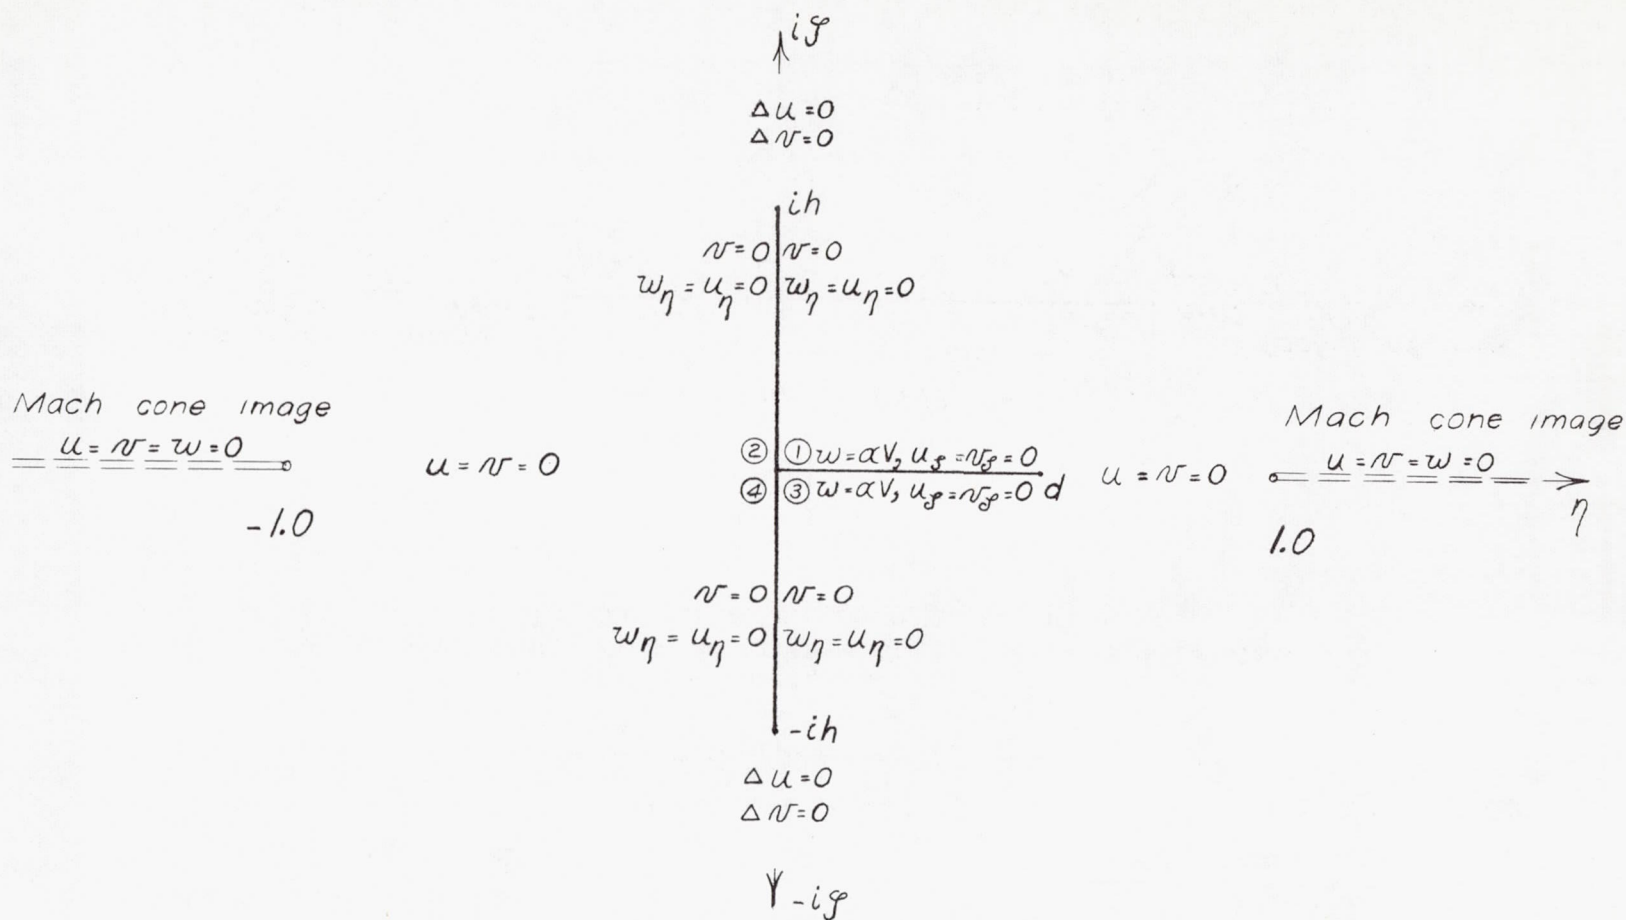 iζ
Δu=0
Δv=0
ih
v=0 v=0
w_η=u_η=0 w_η=u_η=0
Mach cone image
u=v=w=0
-1.0
u=v=0
② ① w=αV, u_ζ=v_ζ=0
④ ③ w=αV, u_ζ=v_ζ=0 d
u=v=0
Mach cone image
u=v=w=0
η
1.0
v=0 v=0
w_η=u_η=0 w_η=u_η=0
-ih
Δu=0
Δv=0
-iζ